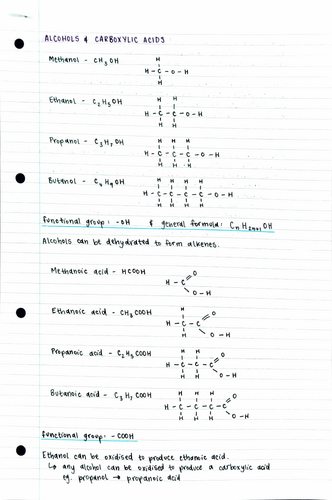 ALCOHOLS & CARBOXYLIC ACIDS
Methanol - CH₃OH
H
H - C - O - H
H
Ethanol - C₂H₅OH
H H
H - C - C - O - H
H H
Propanol - C₃H₇OH
H H H
H - C - C - C - O - H
H H H
Butanol - C₄H₉OH
H H H H
H - C - C - C - C - O - H
H H H H
functional group: -OH & general formula: CnH2n+1OH
Alcohols can be dehydrated to form alkenes.
Methanoic acid - HCOOH
O
H - C
O - H
Ethanoic acid - CH₃COOH
H O
H - C - C
H O - H
Propanoic acid - C₂H₅COOH
H H O
H - C - C - C
H H O - H
Butanoic acid - C₃H₇COOH
H H H O
H - C - C - C - C
H H H O - H
functional group: -COOH
Ethanol can be oxidised to produce ethanoic acid.
↳ any alcohol can be oxidised to produce a carboxylic acid
eg. propanol → propanoic acid